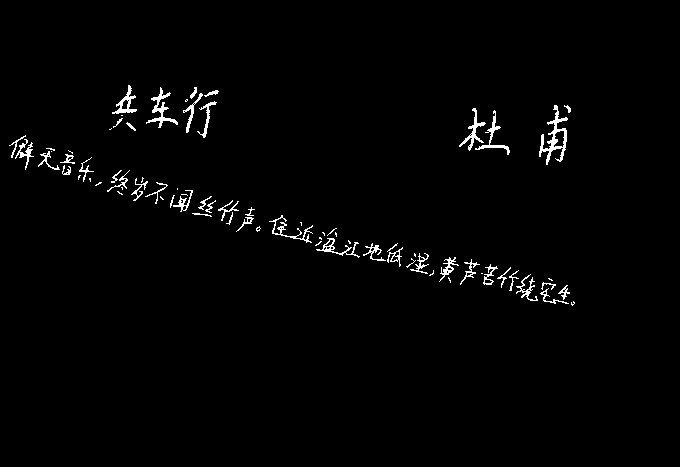 兵车行 杜甫
僻无音乐，终岁不闻丝竹声。住近湓江地低湿，黄芦苦竹绕宅生。